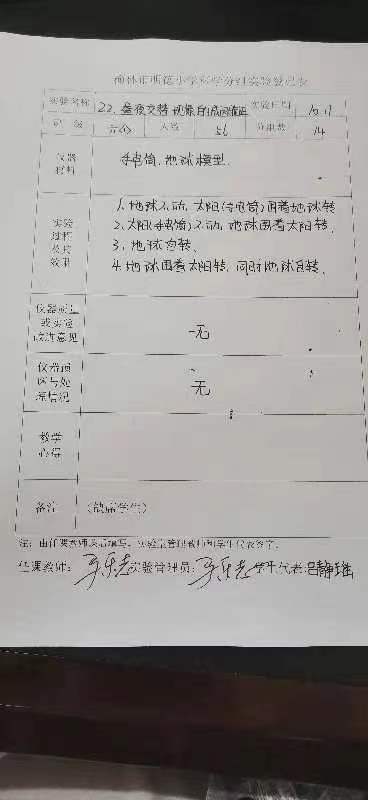 榆林市明德小学科学分组实验登记表
实验名称 22.昼夜交替现象的成因 实验日期 10.11
班级 人数 56 分组数 14
仪器
材料
手电筒、地球模型.
实验
过程
及其
效果
1.地球不动,太阳(手电筒)围着地球转
2.太阳(手电筒)不动,地球围着太阳转.
3.地球自转.
4.地球围着太阳转,同时地球自转.
或实验
改进意见
无
仪器损
坏与处
理情况
无
教学
心得
备注 (缺席学生)
注:由任课教师课后填写,实验室管理教师和学生代表签字。
任课教师: 实验管理员: 学生代表:吕静瑶